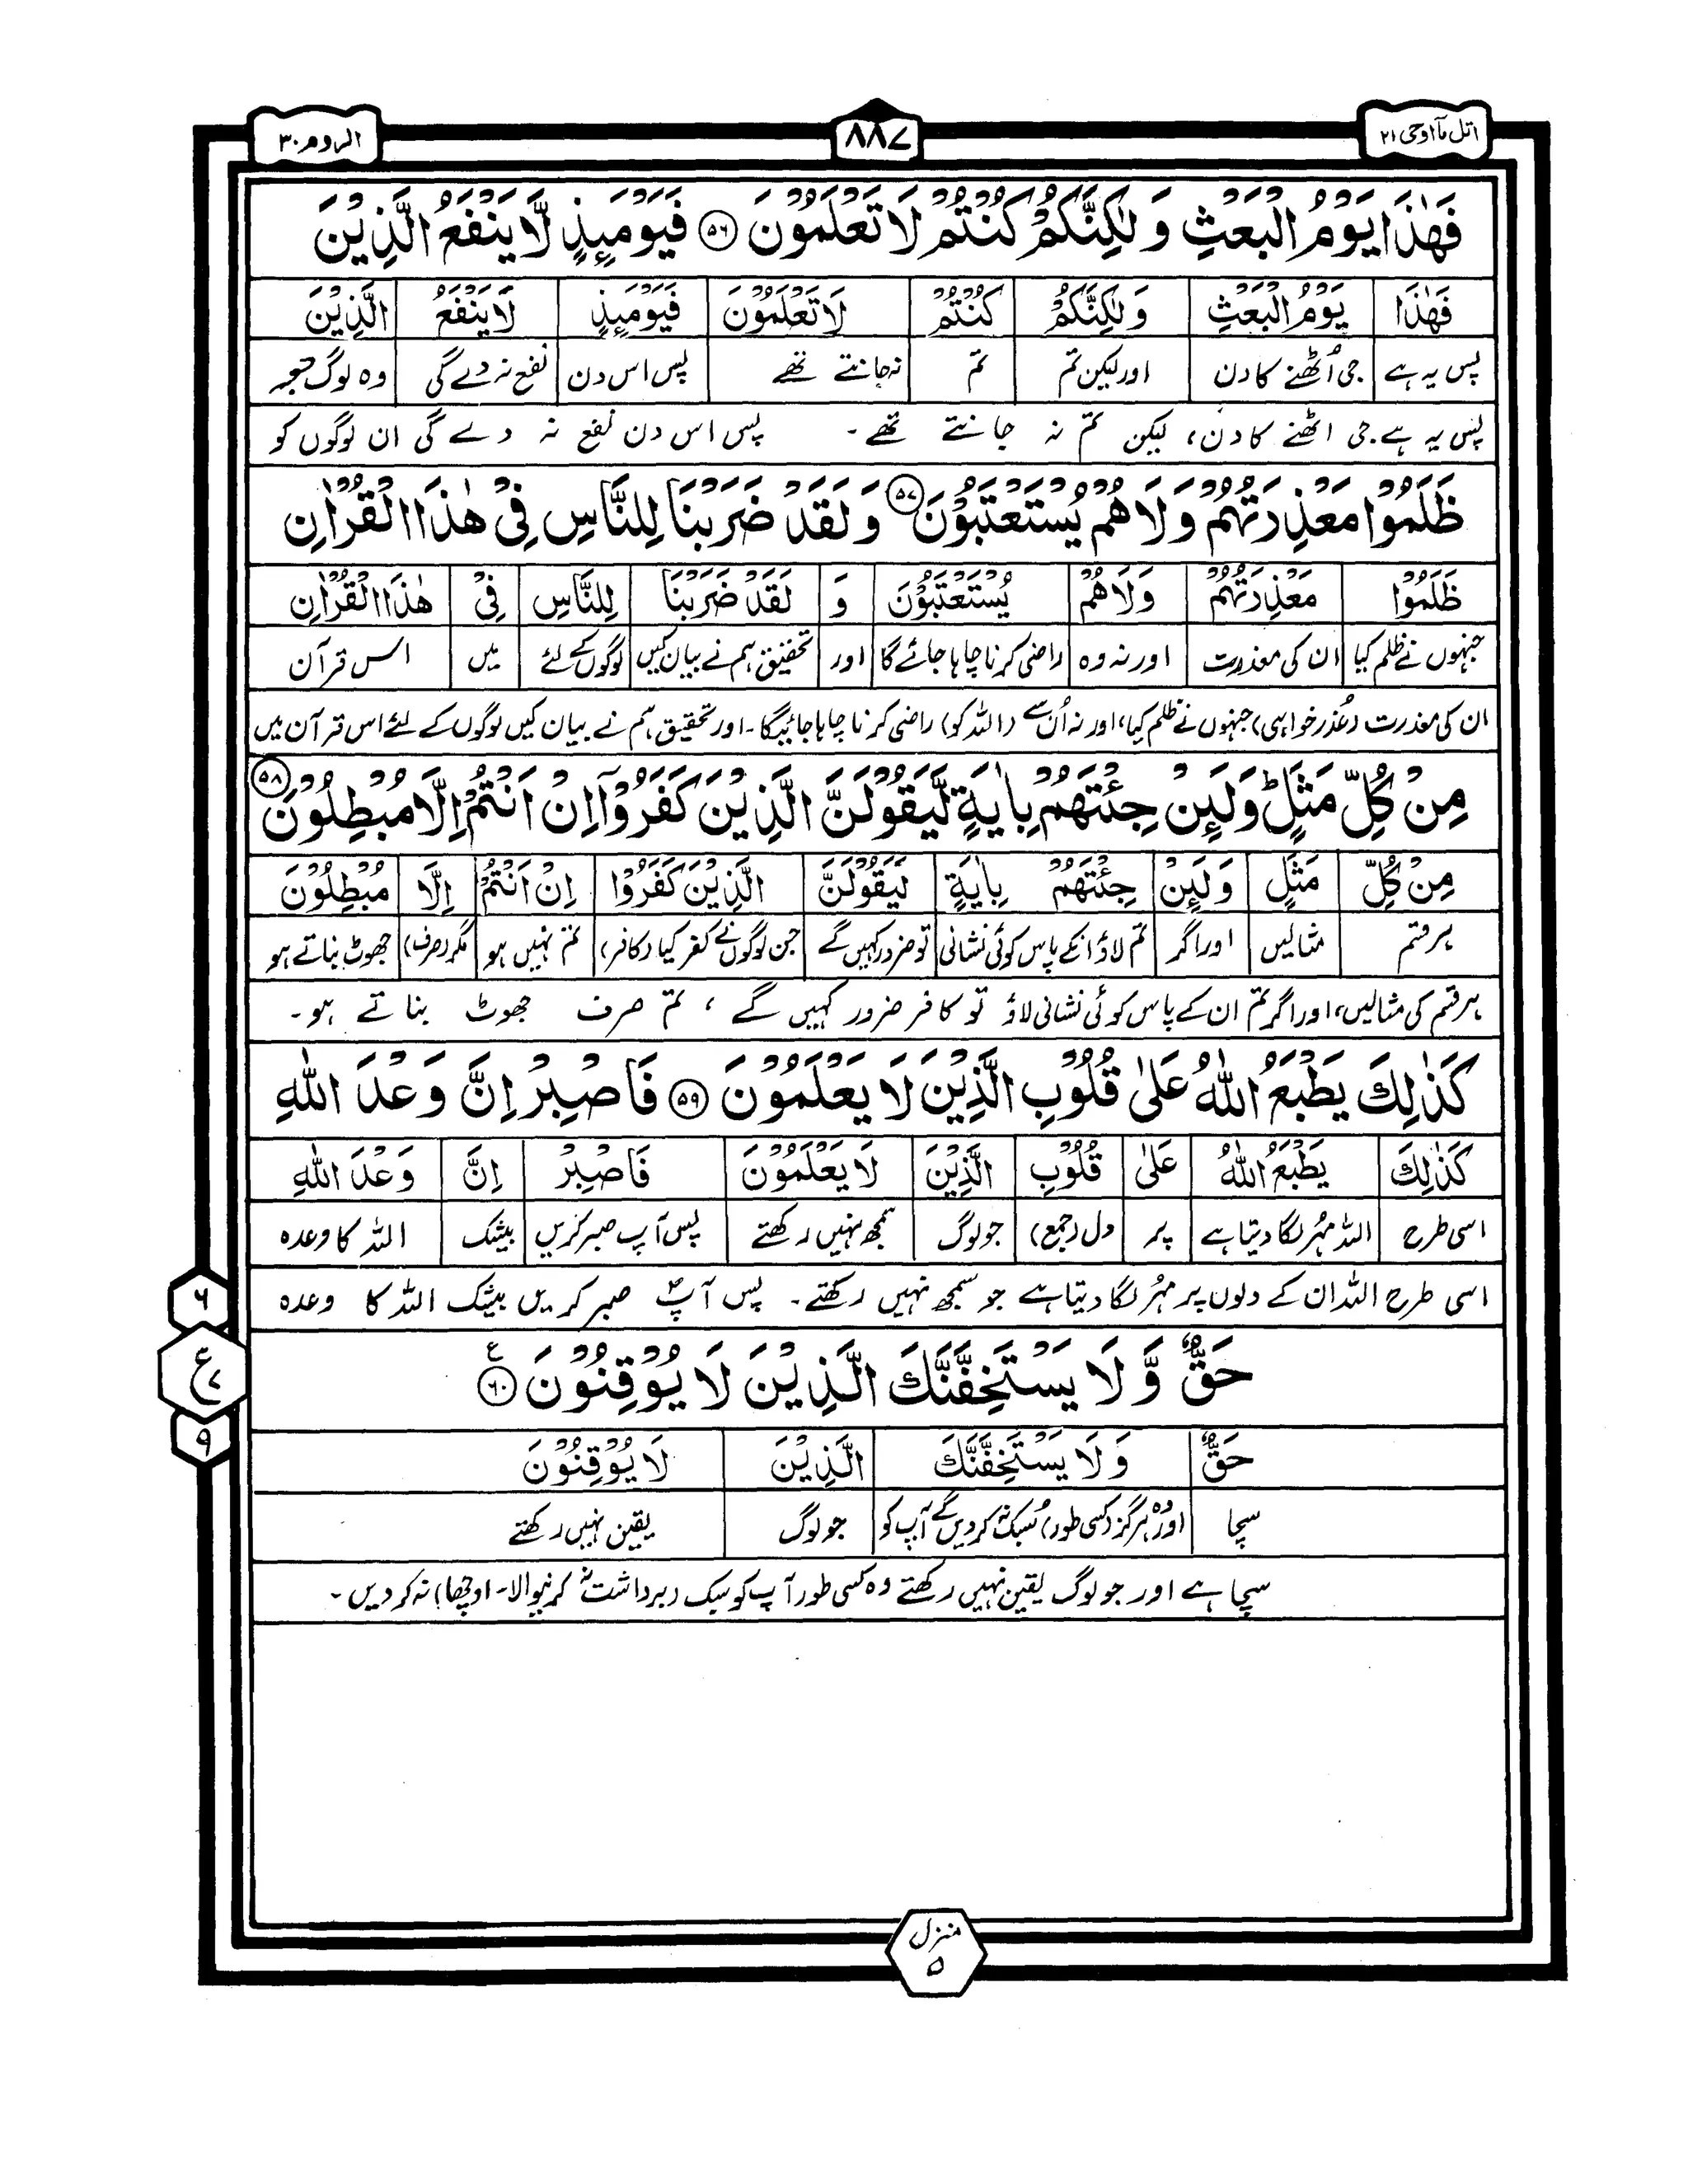 اتل مآ اوحی ۲۱
۸۸۷
الروم ۳۰
فَهٰذَا يَوْمُ الْبَعْثِ وَ لٰكِنَّكُمْ كُنْتُمْ لَا تَعْلَمُوْنَ ۵۶ فَيَوْمَىِٕذٍ لَّا يَنْفَعُ الَّذِيْنَ
فَهٰذَا يَوْمُ الْبَعْثِ وَ لٰكِنَّكُمْ كُنْتُمْ لَا تَعْلَمُوْنَ فَيَوْمَىِٕذٍ لَا يَنْفَعُ الَّذِيْنَ
پس یہ ہے جی اُٹھنے کا دن اور لیکن تم تم نہ جانتے تھے پس اس دن نفع نہ دے گی وہ لوگ جو
پس یہ ہے جی اٹھنے کا دن، لیکن تم نہ جانتے تھے۔ پس اس دن نفع نہ دے گی ان لوگوں کو
ظَلَمُوْا مَعْذِرَتُهُمْ وَ لَا هُمْ يُسْتَعْتَبُوْنَ ۵۷ وَ لَقَدْ ضَرَبْنَا لِلنَّاسِ فِيْ هٰذَا الْقُرْاٰنِ
ظَلَمُوْا مَعْذِرَتُهُمْ وَ لَا هُمْ يُسْتَعْتَبُوْنَ وَ لَقَدْ ضَرَبْنَا لِلنَّاسِ فِيْ هٰذَا الْقُرْاٰنِ
جنہوں نے ظلم کیا ان کی معذرت اور نہ وہ راضی کرنا چاہا جائے گا اور تحقیق ہم نے بیان کیں لوگوں کے لئے میں اس قرآن
ان کی معذرت (عُذر خواہی) جنہوں نے ظلم کیا، اور نہ اُن سے (اللہ کو) راضی کرنا چاہا جائیگا۔ اور تحقیق ہم نے بیان کیں لوگوں کے لئے اس قرآن میں
مِنْ كُلِّ مَثَلٍ ؕ وَ لَىِٕنْ جِئْتَهُمْ بِاٰيَةٍ لَّيَقُوْلَنَّ الَّذِيْنَ كَفَرُوْۤا اِنْ اَنْتُمْ اِلَّا مُبْطِلُوْنَ ۵۸
مِنْ كُلِّ مَثَلٍ وَ لَىِٕنْ جِئْتَهُمْ بِاٰيَةٍ لَيَقُوْلَنَّ الَّذِيْنَ كَفَرُوْا اِنْ اَنْتُمْ اِلَّا مُبْطِلُوْنَ
ہر قسم مثالیں اور اگر تم لاؤ انکے پاس کوئی نشانی تو ضرور کہیں گے جن لوگوں نے کفر کیا (کافر) تم نہیں ہو مگر (صرف) جھوٹ بناتے ہو
ہر قسم کی مثالیں، اور اگر تم ان کے پاس کوئی نشانی لاؤ تو کافر ضرور کہیں گے، تم صرف جھوٹ بناتے ہو۔
كَذٰلِكَ يَطْبَعُ اللّٰهُ عَلٰى قُلُوْبِ الَّذِيْنَ لَا يَعْلَمُوْنَ ۵۹ فَاصْبِرْ اِنَّ وَعْدَ اللّٰهِ
كَذٰلِكَ يَطْبَعُ اللّٰهُ عَلٰى قُلُوْبِ الَّذِيْنَ لَا يَعْلَمُوْنَ فَاصْبِرْ اِنَّ وَعْدَ اللّٰهِ
اسی طرح اللہ مہُر لگا دیتا ہے پر دل (جمع) جو لوگ سمجھ نہیں رکھتے پس آپ صبر کریں بیشک اللہ کا وعدہ
اسی طرح اللہ ان کے دلوں پر مہُر لگا دیتا ہے جو سمجھ نہیں رکھتے۔ پس آپؐ صبر کریں بیشک اللہ کا وعدہ
حَقٌّ وَّ لَا يَسْتَخِفَّنَّكَ الَّذِيْنَ لَا يُوْقِنُوْنَ ۶۰ ع
حَقٌّ وَ لَا يَسْتَخِفَّنَّكَ الَّذِيْنَ لَا يُوْقِنُوْنَ
سچا اور وہ ہرگز (کسی طور) سُبک نہ کردیں گے آپ کو جو لوگ یقین نہیں رکھتے
سچا ہے اور جو لوگ یقین نہیں رکھتے وہ کسی طور آپ کو سبک (برداشت نہ کرنیوالا۔ اوچھا) نہ کردیں۔
۶
ع ۷
۹
منزل
۵